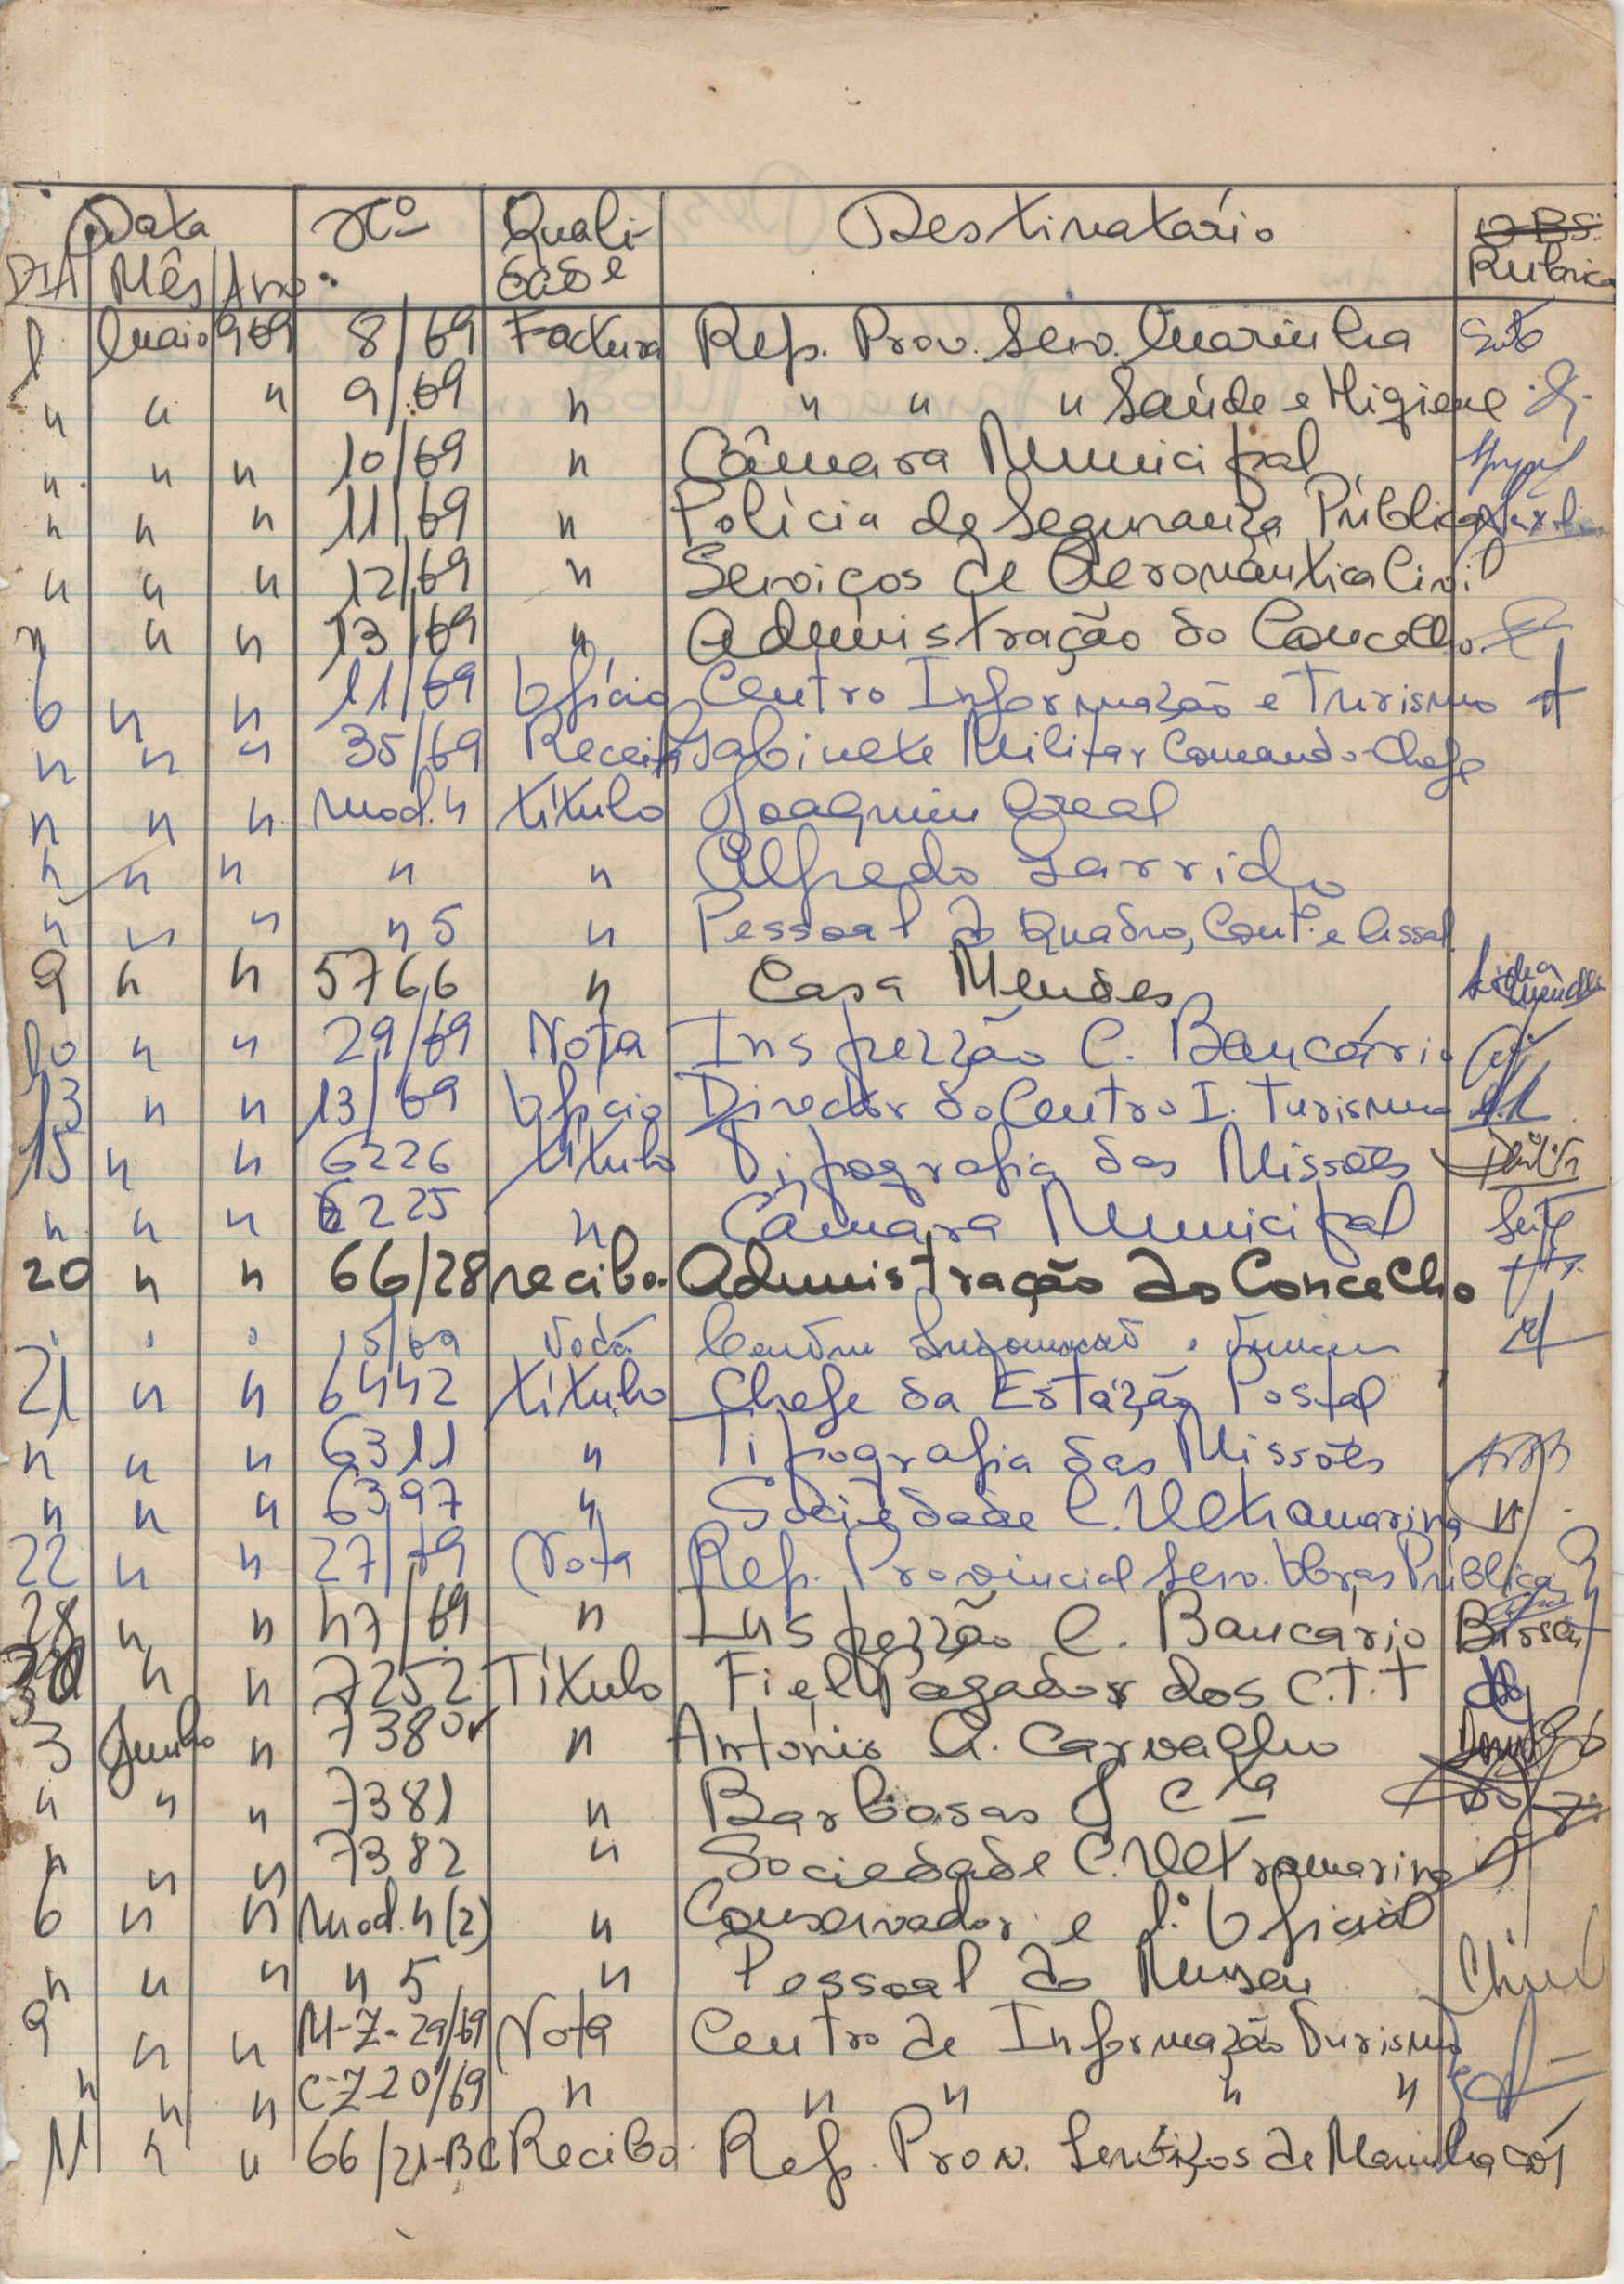 Data Nº Quali- Destinatário OBS:
DIA Mês Ano dade Rubrica
1 Maio 969 8/69 Factura Rep. Prov. Serv. Marinha
" " " 9/69 " " " " Saúde e Higiene
" " " 10/69 " Câmara Municipal
" " " 11/69 " Polícia de Segurança Pública
" " " 12/69 " Serviços de Aeronáutica Civil
" " " 13/69 " Administração do Concelho
6 " " 11/69 Ofício Centro Informação e Turismo
" " " 35/69 Receita Gabinete Militar Comando-Chefe
" " " Mod. 4 título Joaquim
" " " " " Alfredo Garrido
" " " " 5 " Pessoal do Quadro, Cont. e Assal.
9 " " 5766 " Casa Mendes
10 " " 29/69 Nota Inspecção C. Bancário
13 " " 13/69 Ofício Director do Centro I. Turismo
15 " " 6226 título Tipografia das Missões
" " " 6225 " Câmara Municipal
20 " " 66/28 recibo. Administração do Concelho
" " " 15/69 Nota Centro Informação e Turismo
21 " " 6442 título Chefe da Estação Postal
" " " 6311 " Tipografia das Missões
" " " 6397 " Sociedade C. Ultramarina "
22 " " 27/69 Nota Rep. Provincial Serv. Obras Pública
28 " " 47/69 " Inspecção C. Bancário
30 " " 7252 Título Fiel Pagador dos C.T.T
3 Junho " 7380 " António A. Carvalho
" " " 7381 " Barbosas & Cta
" " " 7382 " Sociedade C. Ultramarina
6 " " Mod. 4 (2) " Conservador e 1.º Oficial
" " " " 5 " Pessoal do Museu
9 " " M-Z-29/69 Nota Centro de Informação Turismo
" " " C-Z-20/69 " " " " "
11 " " 66/21-BC Recibo Rep. Prov. Serviços de Marinha